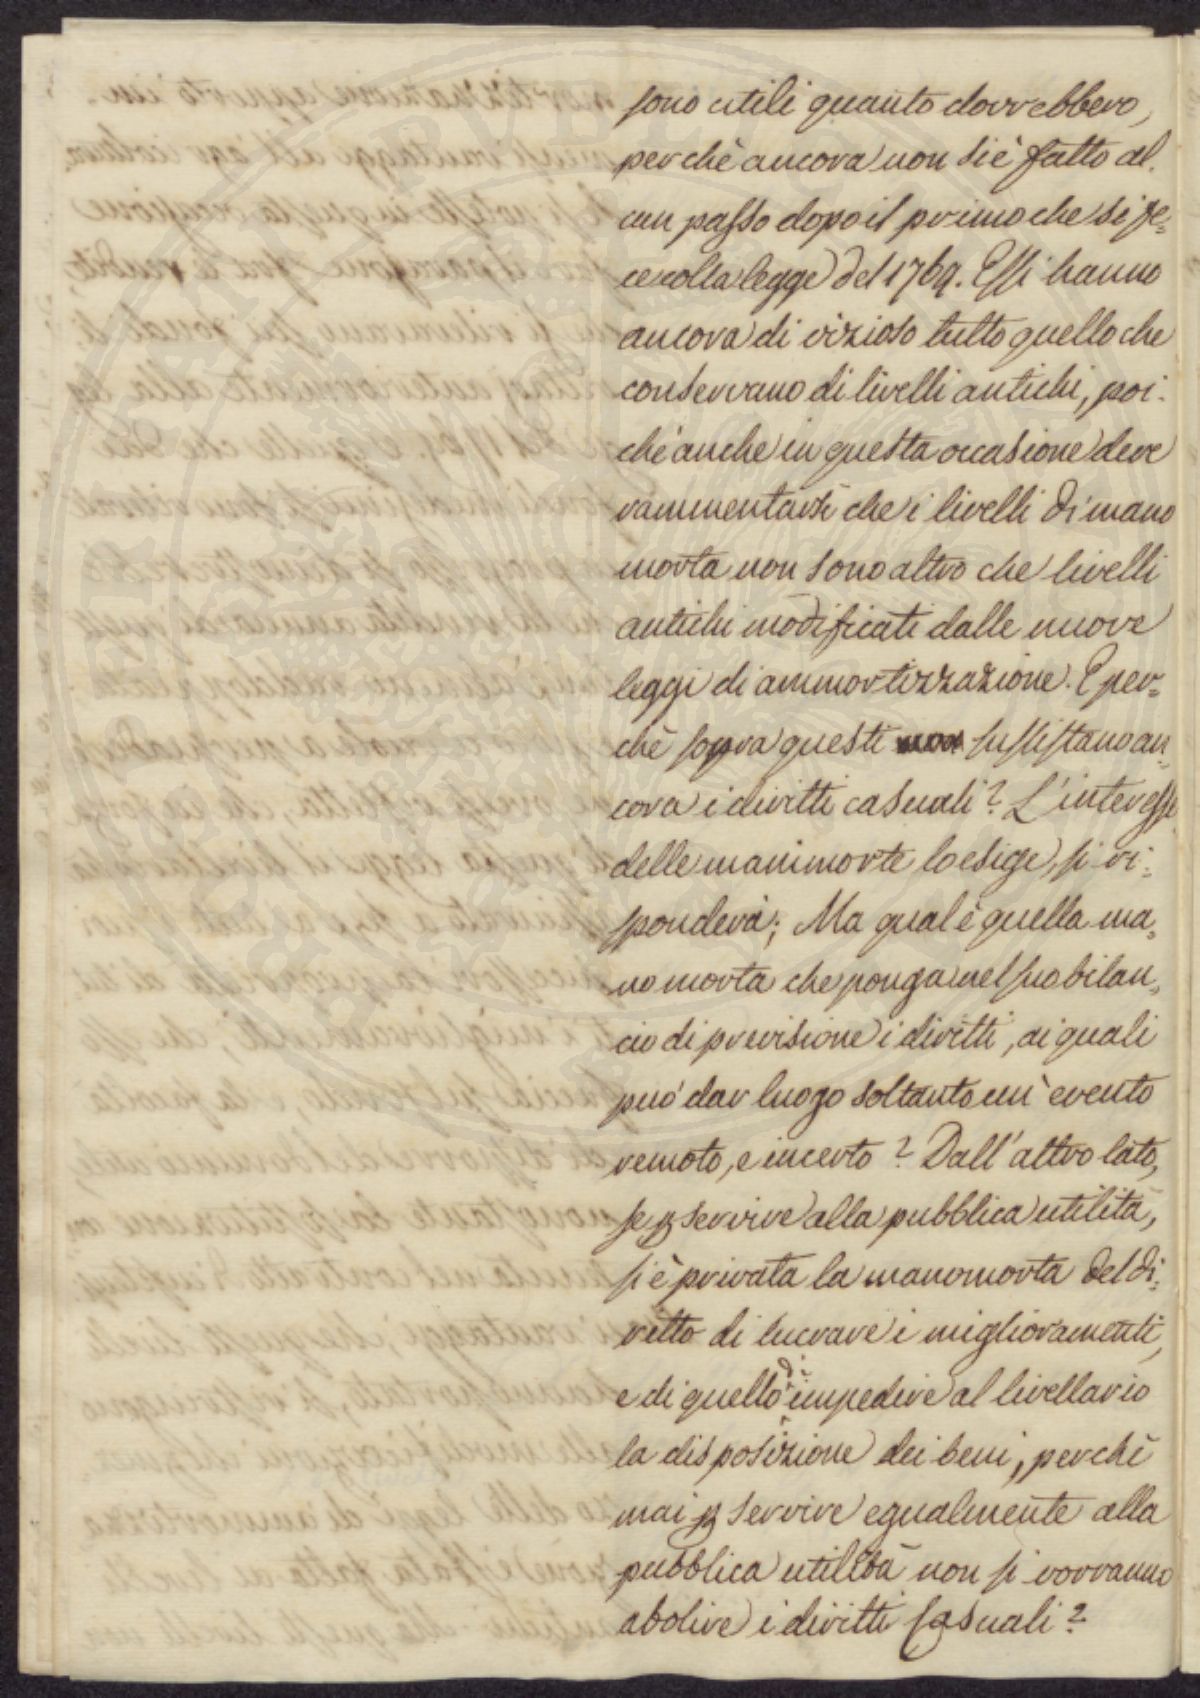 sono utili quanto dovrebbero,
perchè ancora non si è fatto al-
cun passo dopo il primo che si fe-
ce colla legge del 1769. Essi hanno
ancora di vizioso tutto quello che
conservano di livelli antichi, poi-
chè anche in questa occasione deve
rammentarsi che i livelli di mano
morta non sono altro che livelli
antichi modificati dalle nuove
leggi di ammortizzazione. E per-
chè sopra questi sussistano an-
cora i diritti casuali? L'interesse
delle manimorte lo esige, si ri-
sponderà; Ma qual è quella ma-
no morta che ponga nel suo bilan-
cio di previsione i diritti, ai quali
può dar luogo soltanto un evento
remoto, e incerto? Dall'altro lato,
se p servire alla pubblica utilità,
si è privata la manomorta del di-
ritto di lucrare i miglioramenti,
e di quello di impedire al livellario
la disposizione dei beni, perchè
mai p servire egualmente alla
pubblica utilità non si vorranno
abolire i diritti casuali?